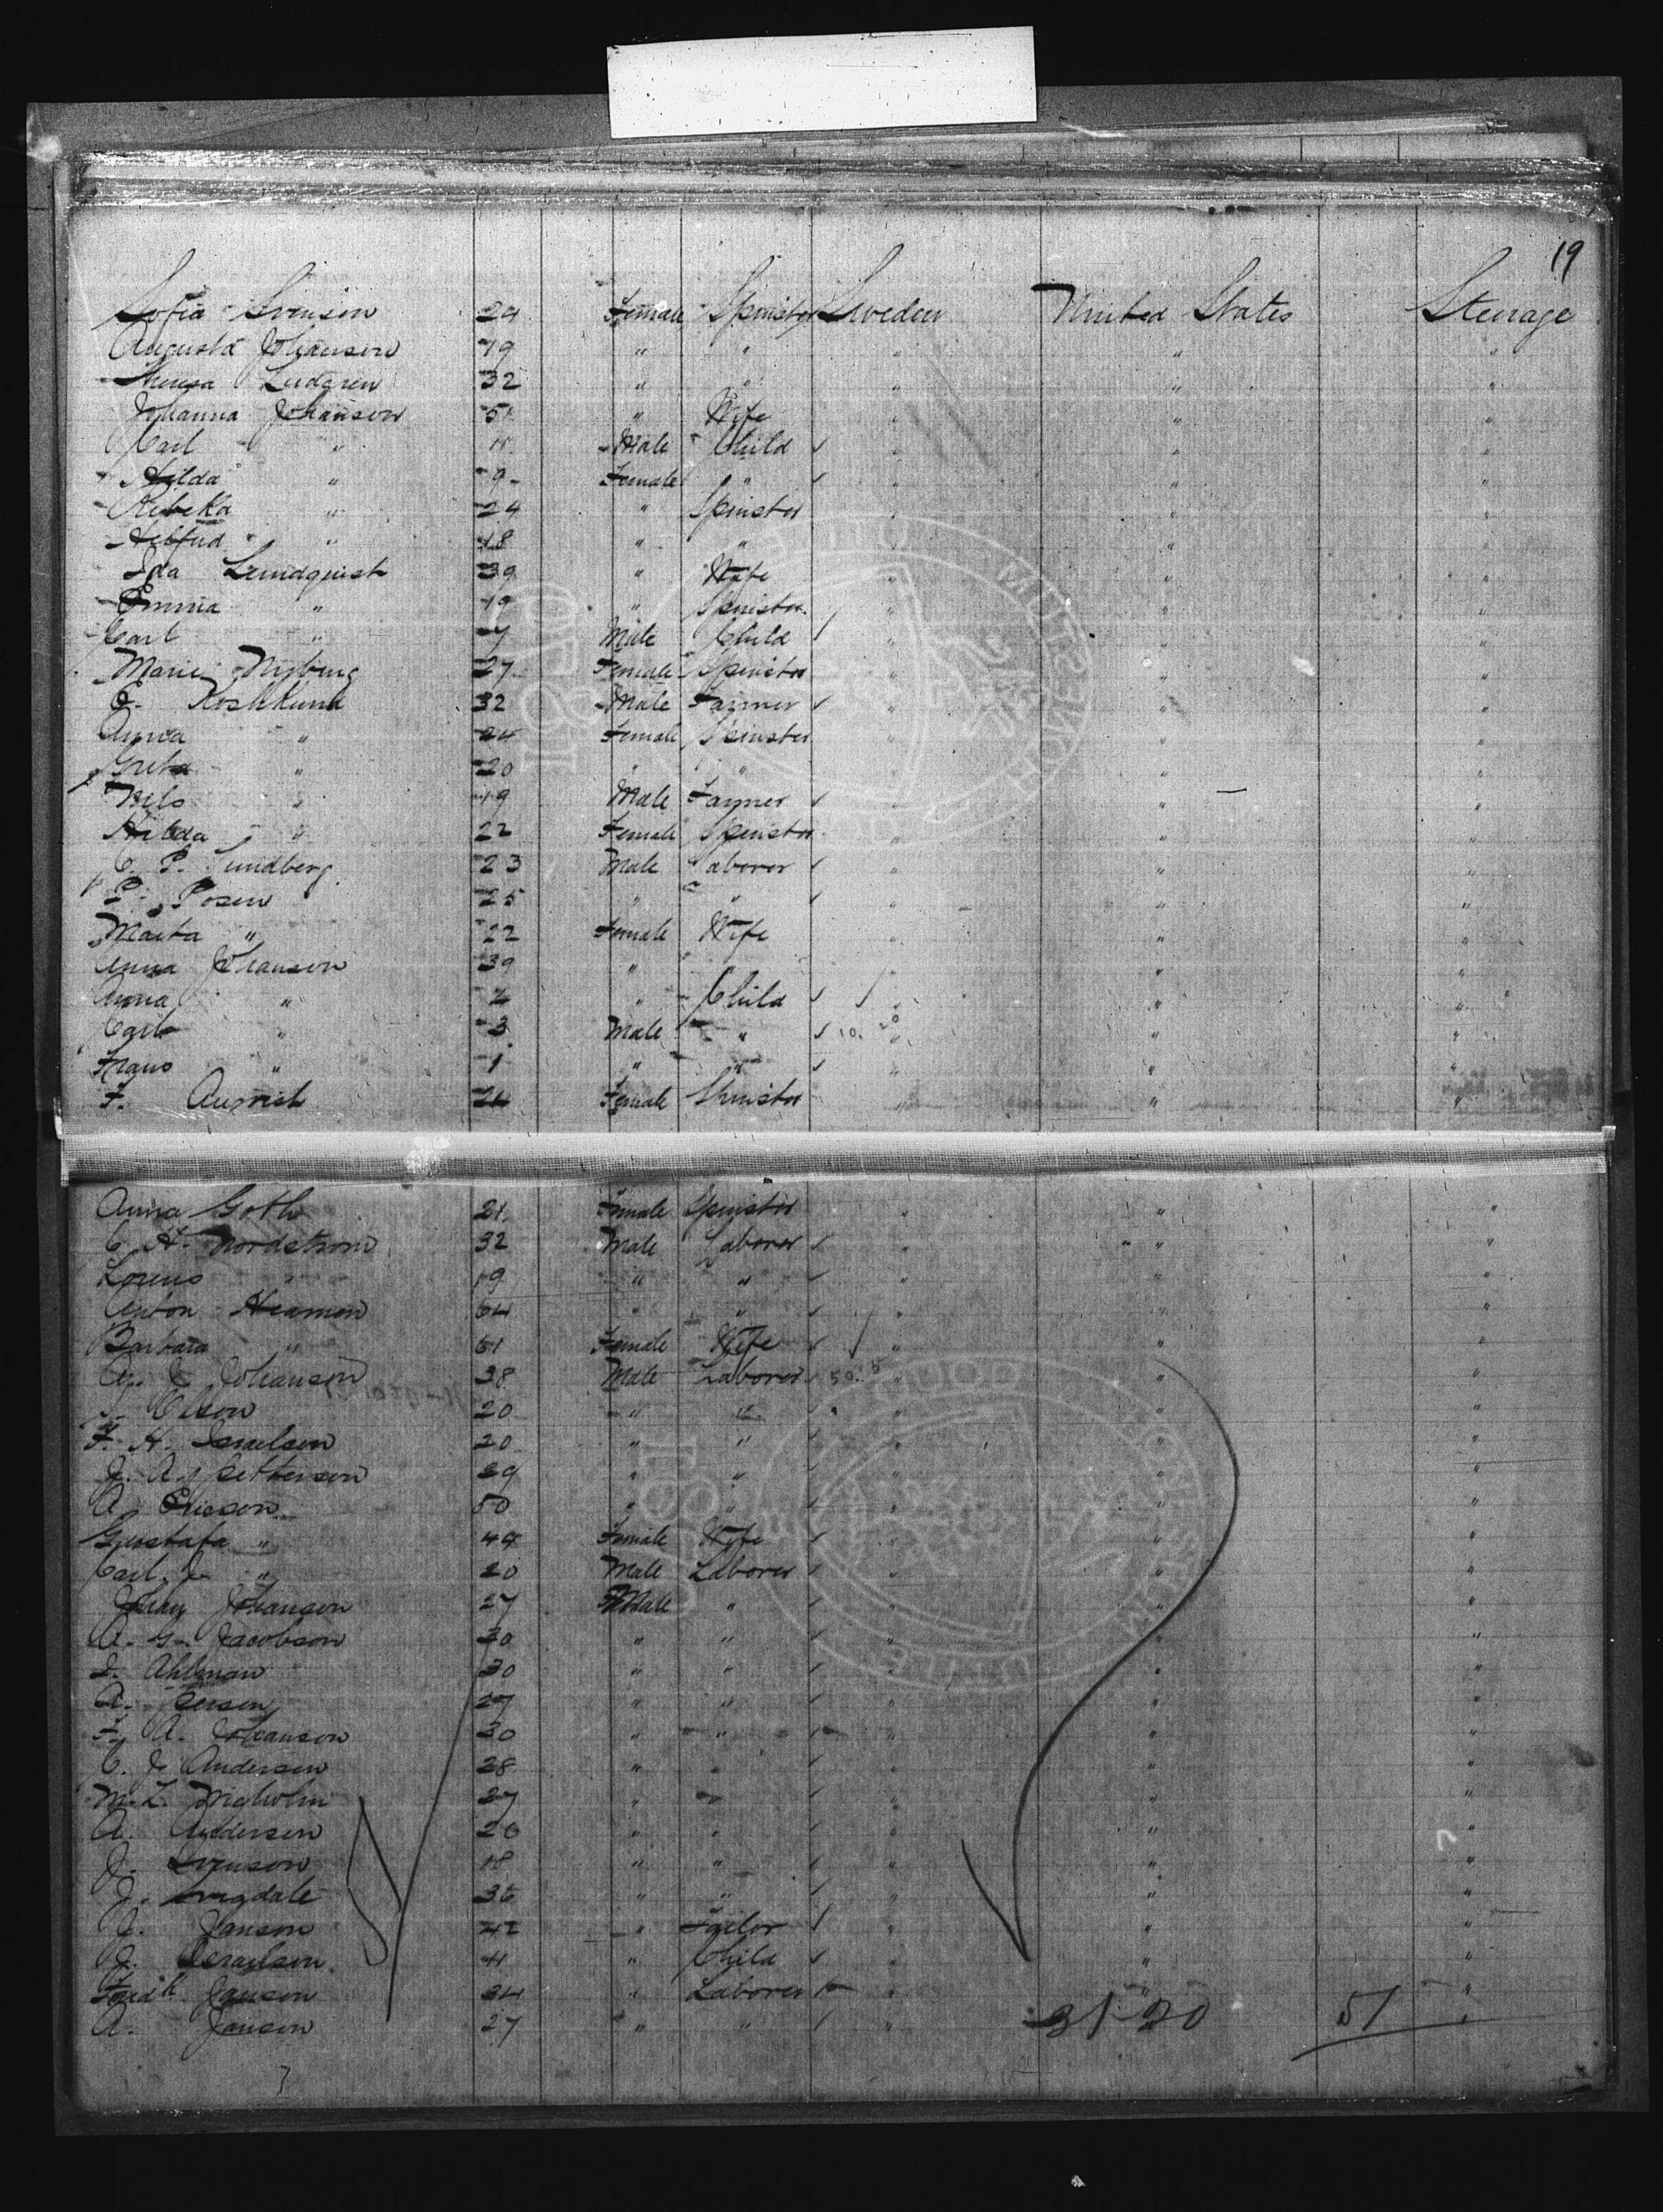 19
Sofia Svenson 24 Female Spinster Sweden United States Steerage
Augusta Johanson 19 " " " " "
Lindgren 32 " " " " "
Johanna Johanson 51 " Wife " " "
Carl " 11 Male Child " " "
Hilda " 9 Female " " " "
Rebeka " 24 " Spinster " " "
" 18 " " " " "
Ida Lundquist 39 " Wife " " "
Emma " 19 " Spinster " " "
Carl " 7 Male Child " " "
Marie Nyberg 27 Female Spinster " " "
32 Male Farmer " " "
Anna " 24 Female Spinster " " "
Greta " 20 " " " " "
Nels " 19 Male Farmer " " "
Hilda " 22 Female Spinster " " "
C. P. Sundberg 23 Male Laborer " " "
P. Posen 25 " " " " "
Marta " 22 Female Wife " " "
Anna Johanson 39 " " " " "
Anna " " Child " " "
Carl " 3 Male " 10. 20 " " "
Frans " 1 " " " " "
F. 24 Female Spinster " " "
Anna Goth 21 Female Spinster " " "
C. A. Nordstrom 32 Male Laborer " " "
Lorens " 19 " " " " "
Anton 64 " " " " "
Barbara " 61 Female Wife " " "
A. J. Johanson 38 Male Laborer 50. " " "
Olson 20 " " " " "
F. A. Israelson 20 " " " " "
J. A. Petterson 29 " " " " "
A. Ericson 50 " " " " "
Gustafa " 49 Female Wife " " "
Carl J. " 20 Male Laborer " " "
Johan Johanson 27 Male " " " "
A. G. Jacobson 30 " " " " "
Ahlman 30 " " " " "
A. Person 27 " " " " "
F. A. Johanson 30 " " " " "
C. J. Anderson 28 " " " " "
M. L. 27 " " " " "
A. Anderson 26 " " " " "
J. Svenson 18 " " " " "
J. 36 " " " " "
J. Janson 42 " Tailor " " "
J. Israelson " Child " " "
Fredk. Janson 34 " Laborer " " "
A. Janson 27 " " " 31-20 51 "